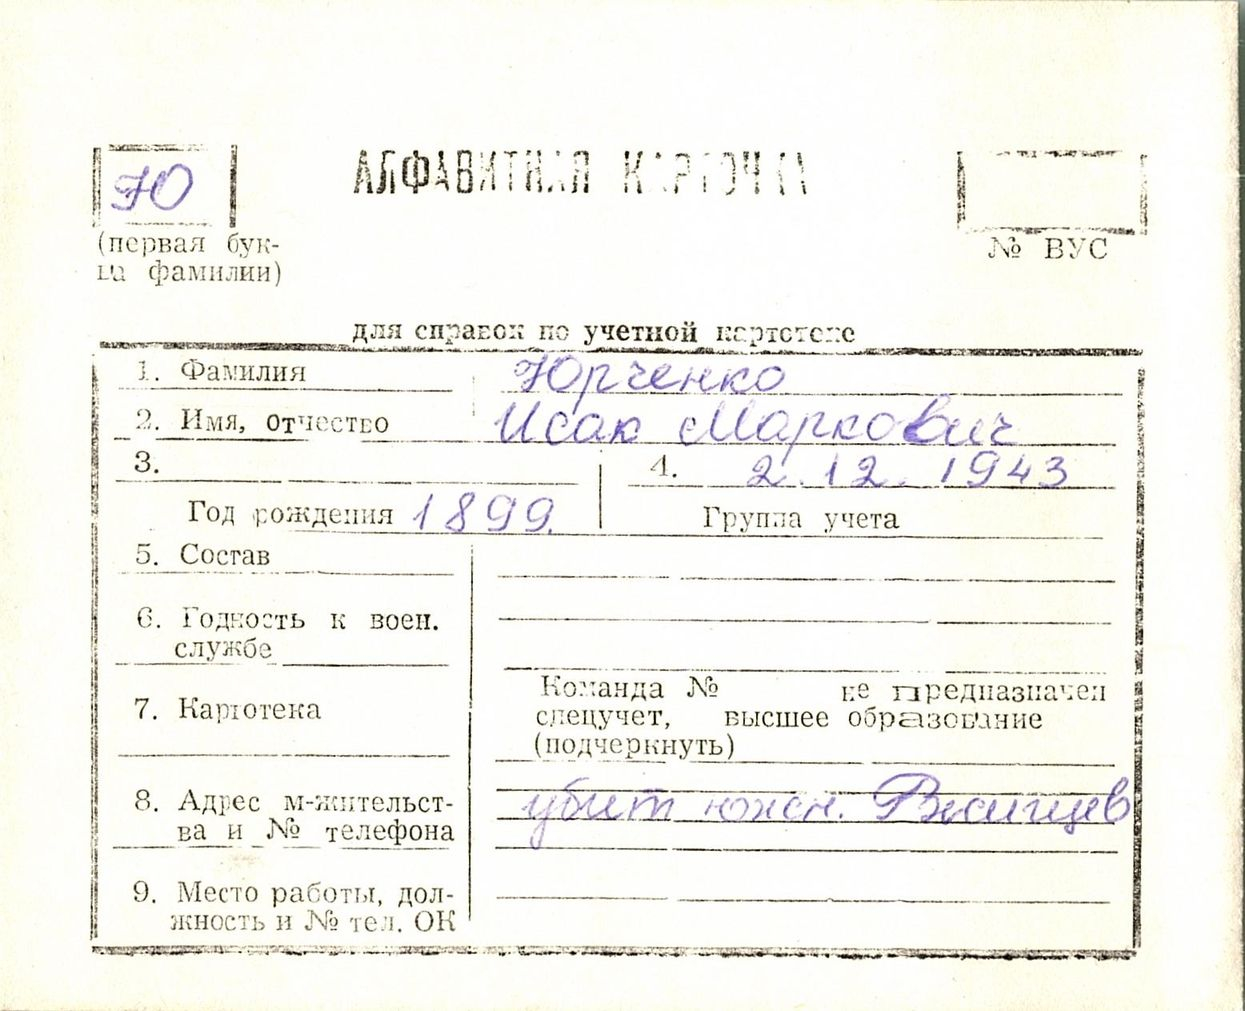 Ю
АЛФАВИТНАЯ КАРТОЧКА
(первая бук-
ва фамилии)
№ ВУС
для справок по учетной картотеке
1. Фамилия Юрченко
2. Имя, отчество Исак Маркович
3. 4. 2.12.1943
Год рождения 1899. Группа учета
5. Состав
6. Годность к воен.
службе
7. Картотека
Команда № не предназначен
спецучет, высшее образование
(подчеркнуть)
8. Адрес м-жительст-
ва и № телефона
убит южн.
9. Место работы, дол-
жность и № тел. ОК